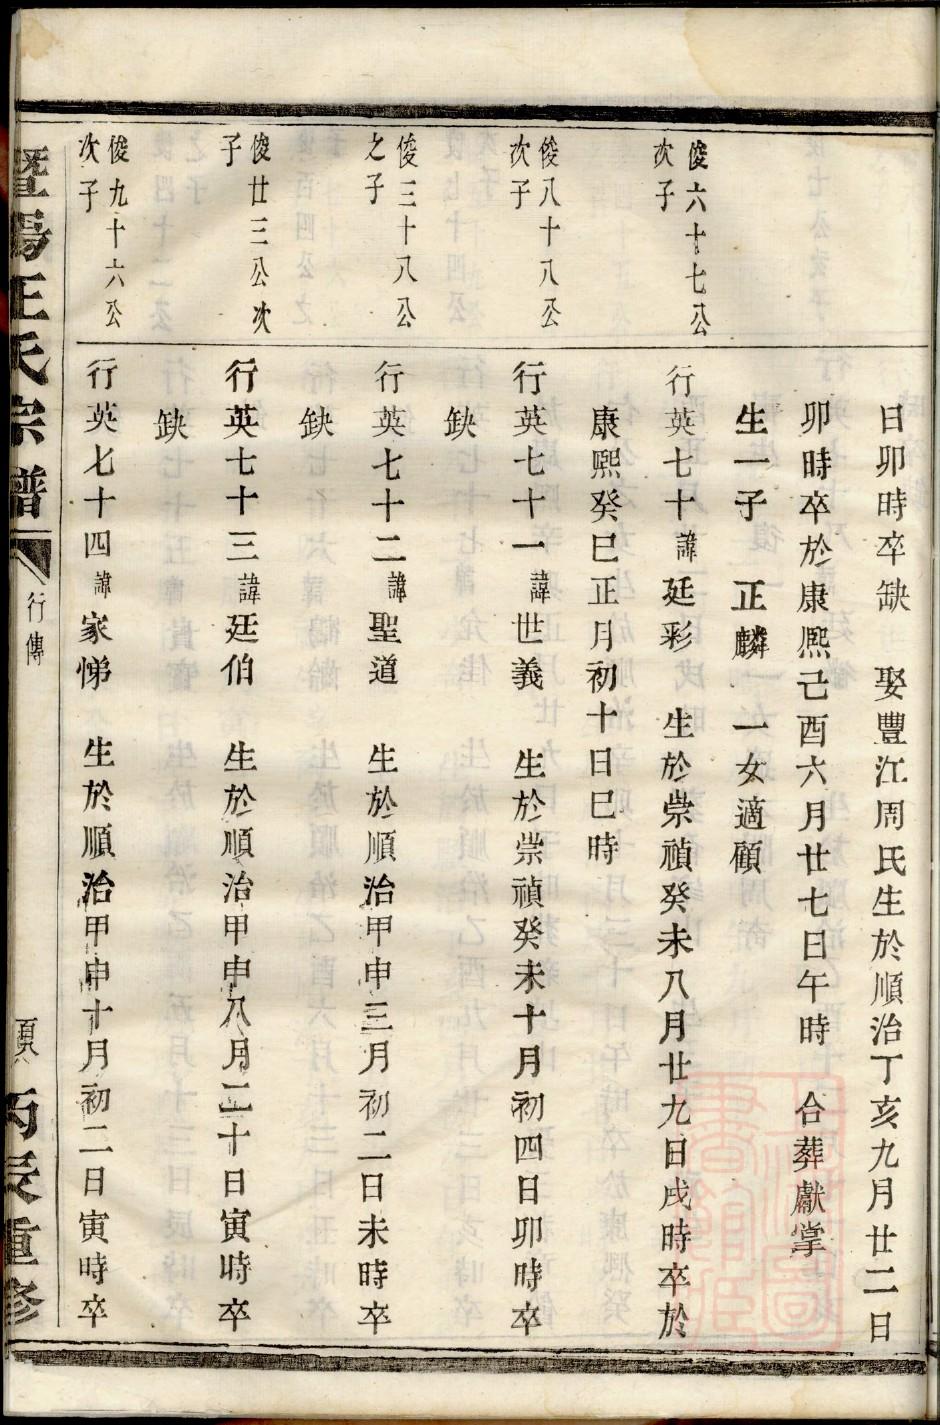 日卯時卒缺　娶豐江周氏生於順治丁亥九月廿二日
卯時卒於康熙己酉六月廿七日午時　合葬獻掌
生一子　正麟　一女適顧
俊六十七公
次子
行英七十諱廷彩　生於崇禎癸未八月廿九日戌時卒於
康熙癸巳正月初十日巳時
俊八十八公
次子
行英七十一諱世義　生於崇禎癸未十月初四日卯時卒
缺
俊三十八公
之子
行英七十二諱聖道　生於順治甲申三月初二日未時卒
缺
俊廿三公次
子
行英七十三諱廷伯　生於順治甲申八月二十日寅時卒
缺
俊九十六公
次子
行英七十四諱家悌　生於順治甲申十月初二日寅時卒
暨陽王氏宗譜
行傳
丙辰重修